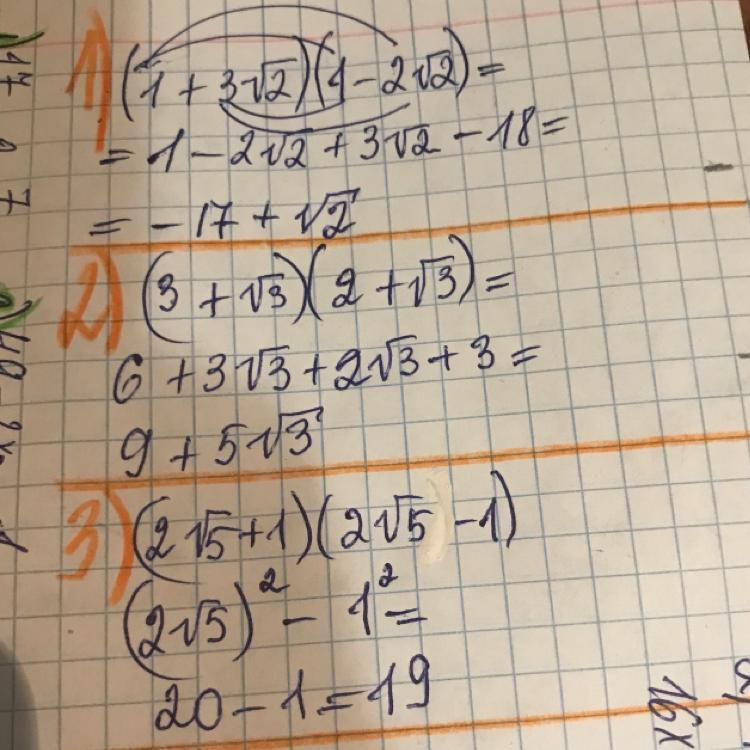 1) (1 + 3√2)(1 - 2√2) =
= 1 - 2√2 + 3√2 - 18 =
= -17 + √2
2) (3 + √3)(2 + √3) =
6 + 3√3 + 2√3 + 3 =
9 + 5√3
3) (2√5 + 1)(2√5 - 1)
(2√5)² - 1² =
20 - 1 = 19
16x